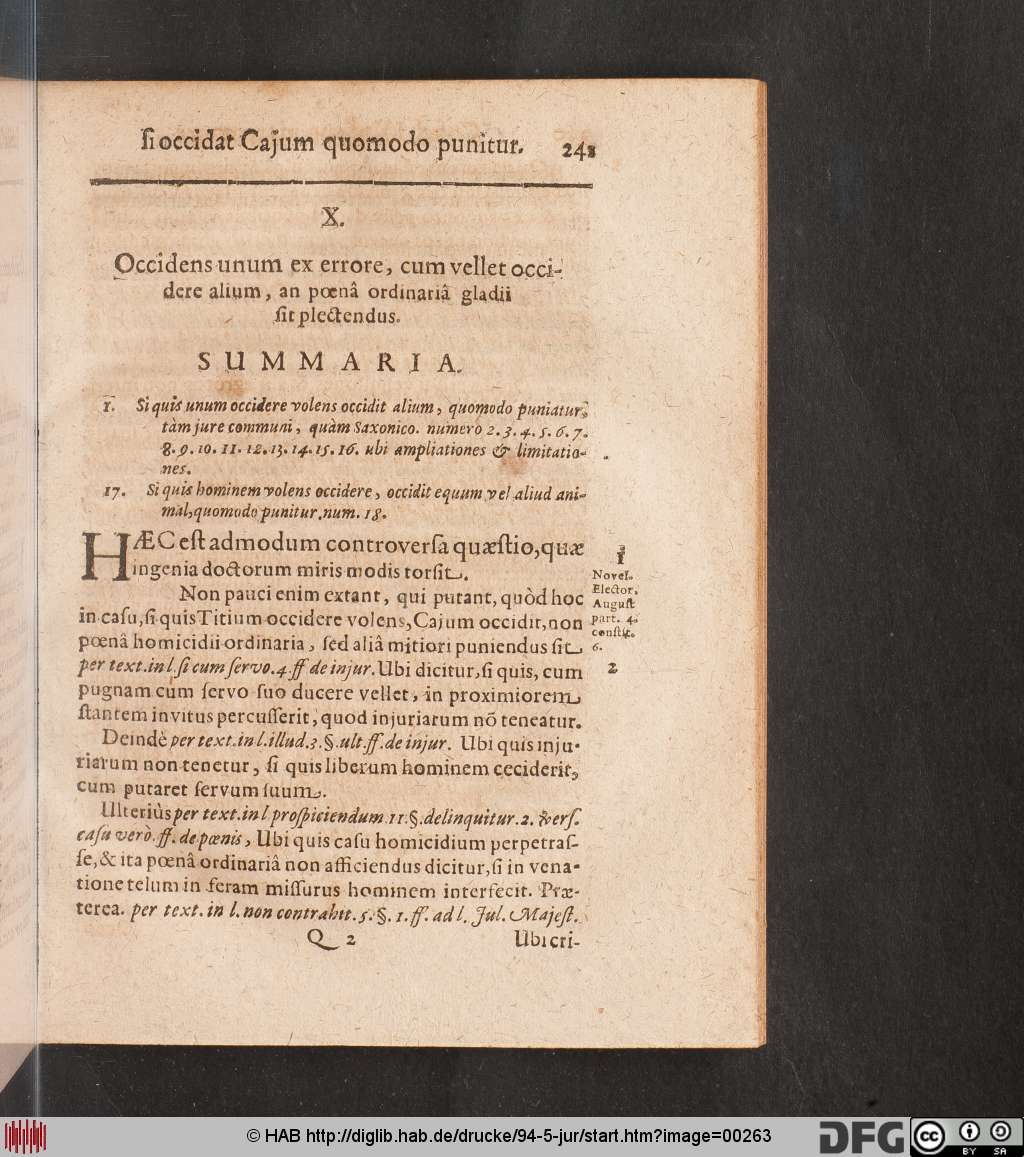 ſi occidat Cajum quomodo punitur. 243
X.
Occidens unum ex errore, cum vellet occi-
dere alium, an pœnâ ordinariâ gladii
ſit plectendus.
SUMMARIA.
1. Si quis unum occidere volens occidit alium, quomodo puniatur,
tàm jure communi, quàm Saxonico. numero 2. 3. 4. 5. 6. 7.
8. 9. 10. 11. 12. 13. 14. 15. 16. ubi ampliationes & limitatio-
nes.
17. Si quis hominem volens occidere, occidit equum vel aliud ani-
mal, quomodo punitur. num. 18.
HÆC eſt admodum controverſa quæſtio, quæ
ingenia doctorum miris modis torſit.
Non pauci enim extant, qui putant, quòd hoc
in caſu, ſi quis Titium occidere volens, Cajum occidit, non
pœnâ homicidii ordinaria, ſed aliâ mitiori puniendus ſit
per text. in l. ſi cum ſervo. 4. ff de injur. Ubi dicitur, ſi quis, cum
pugnam cum ſervo ſuo ducere vellet, in proximiorem
ſtantem invitus percuſſerit, quod injuriarum nõ teneatur.
Deindè per text. in l. illud. 3. §. ult. ff. de injur. Ubi quis inju-
riarum non tenetur, ſi quis liberum hominem ceciderit,
cum putaret ſervum ſuum.
Ulteriùs per text. in l proſpiciendum 11. §. delinquitur. 2. verſ.
caſu verò. ff. de pœnis, Ubi quis caſu homicidium perpetraſ-
ſe, & ita pœnâ ordinariâ non afficiendus dicitur, ſi in vena-
tione telum in feram miſſurus hominem interfecit. Præ-
terea. per text. in l. non contrahit. 5. §. 1. ff. ad l. Jul. Majeſt.
Q 2 Ubi cri-
1
Novel.
Elector.
Auguſt
part. 4.
conſtit.
6.
2
© HAB http://diglib.hab.de/drucke/94-5-jur/start.htm?image=00263
DFG
cc
BY SA